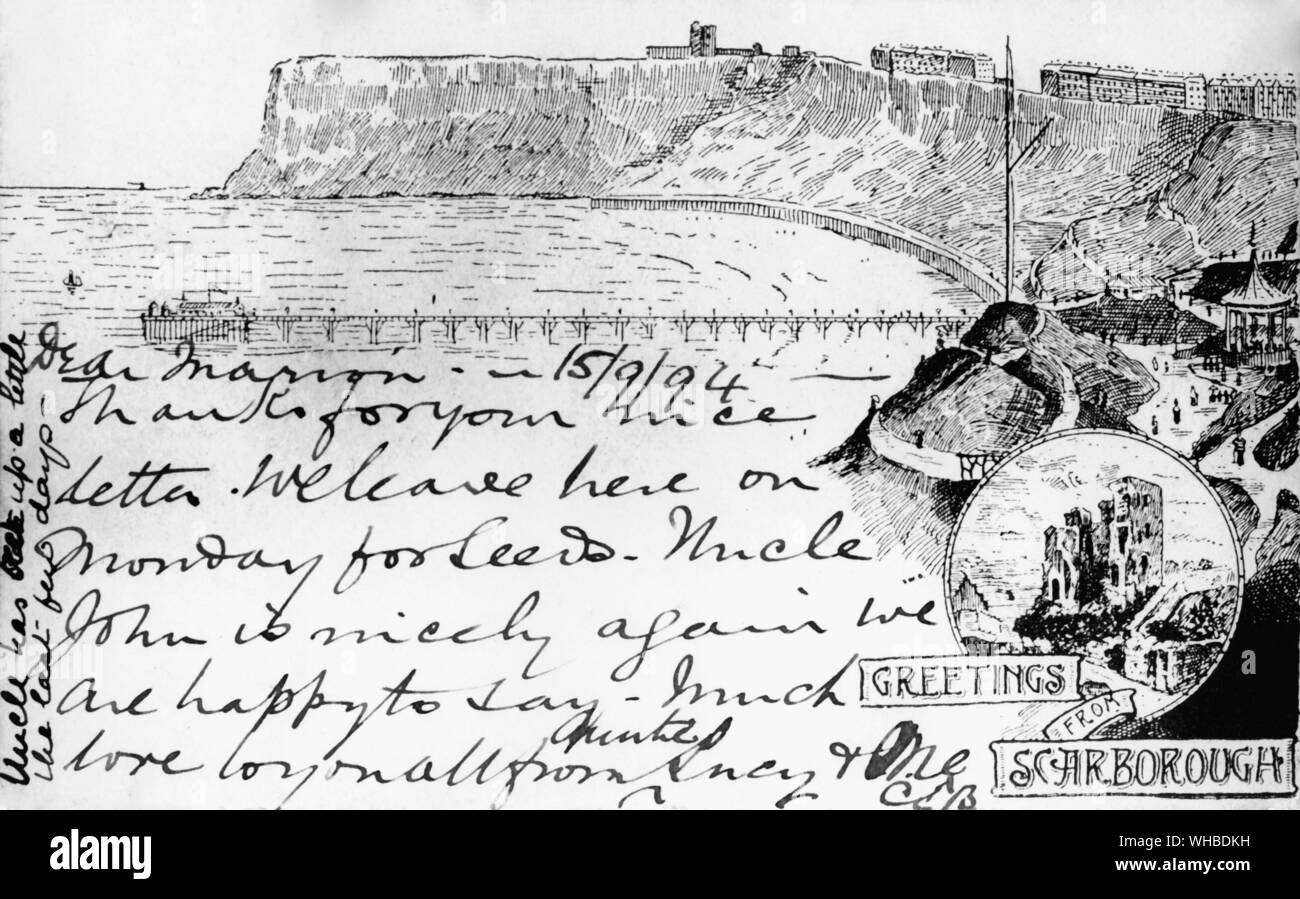 Dear Marion - 15/9/94 -
Thanks for your nice
letter. We leave here on
Monday for Leeds - Uncle
John is nicely again we
are happy to say - Much
love to you all from Auntie Lucy & Me
CEB
Uncle has been up a little
the last few days -
GREETINGS
FROM
SCARBOROUGH
a
alamy
Image ID: WHBDKH
www.alamy.com